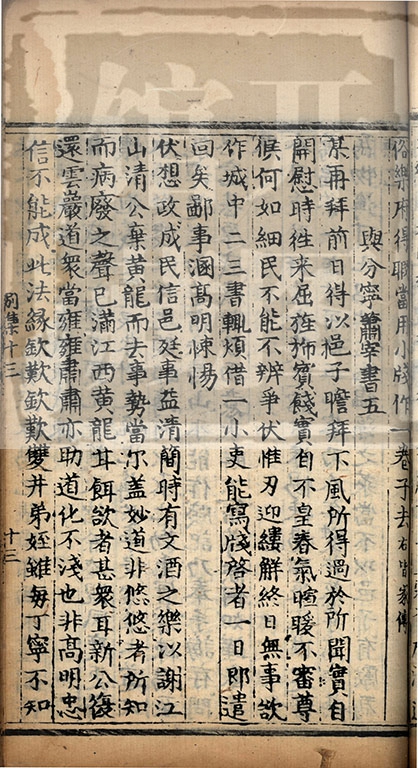 俗樂府得暇當用小牋作一卷子去右皆家傳
與分寧蕭宰書五
某再拜前日得以邑子瞻拜下風所得過於所聞實自
開慰時往來屈旌斾賓餞實自不皇春氣暄暖不審尊
候何如細民不能不辨爭伏惟刃迎縷解終日無事欲
作城中二三書輒煩借一小吏能寫牋啓者一日即遣
回矣鄙事溷高明悚惕
伏想政成民信邑廷事益清簡時有文酒之樂以謝江
山清公棄黃龍而去事勢當尔盖妙道非悠悠者所知
而病廢之聲已滿江西黃龍耳餌欲者甚衆耳新公復
還雲巖道衆當雍雍肅肅亦助道化不淺也非高明忠
信不能成此法緣欽歎欽歎雙井弟姪雖每丁寧不知
別集十三
十三